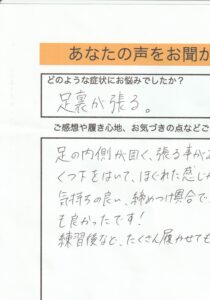 あなたの声をお聞か
どのような症状にお悩みでしたか？
足裏が張る。
ご感想や履き心地、お気づきの点などご
足の内側が固く、張る事が
くつ下をはいて、ほぐれた感じが
気持ちの良い、締めつけ具合で
も良かったです！
練習後など、たくさん履かせても